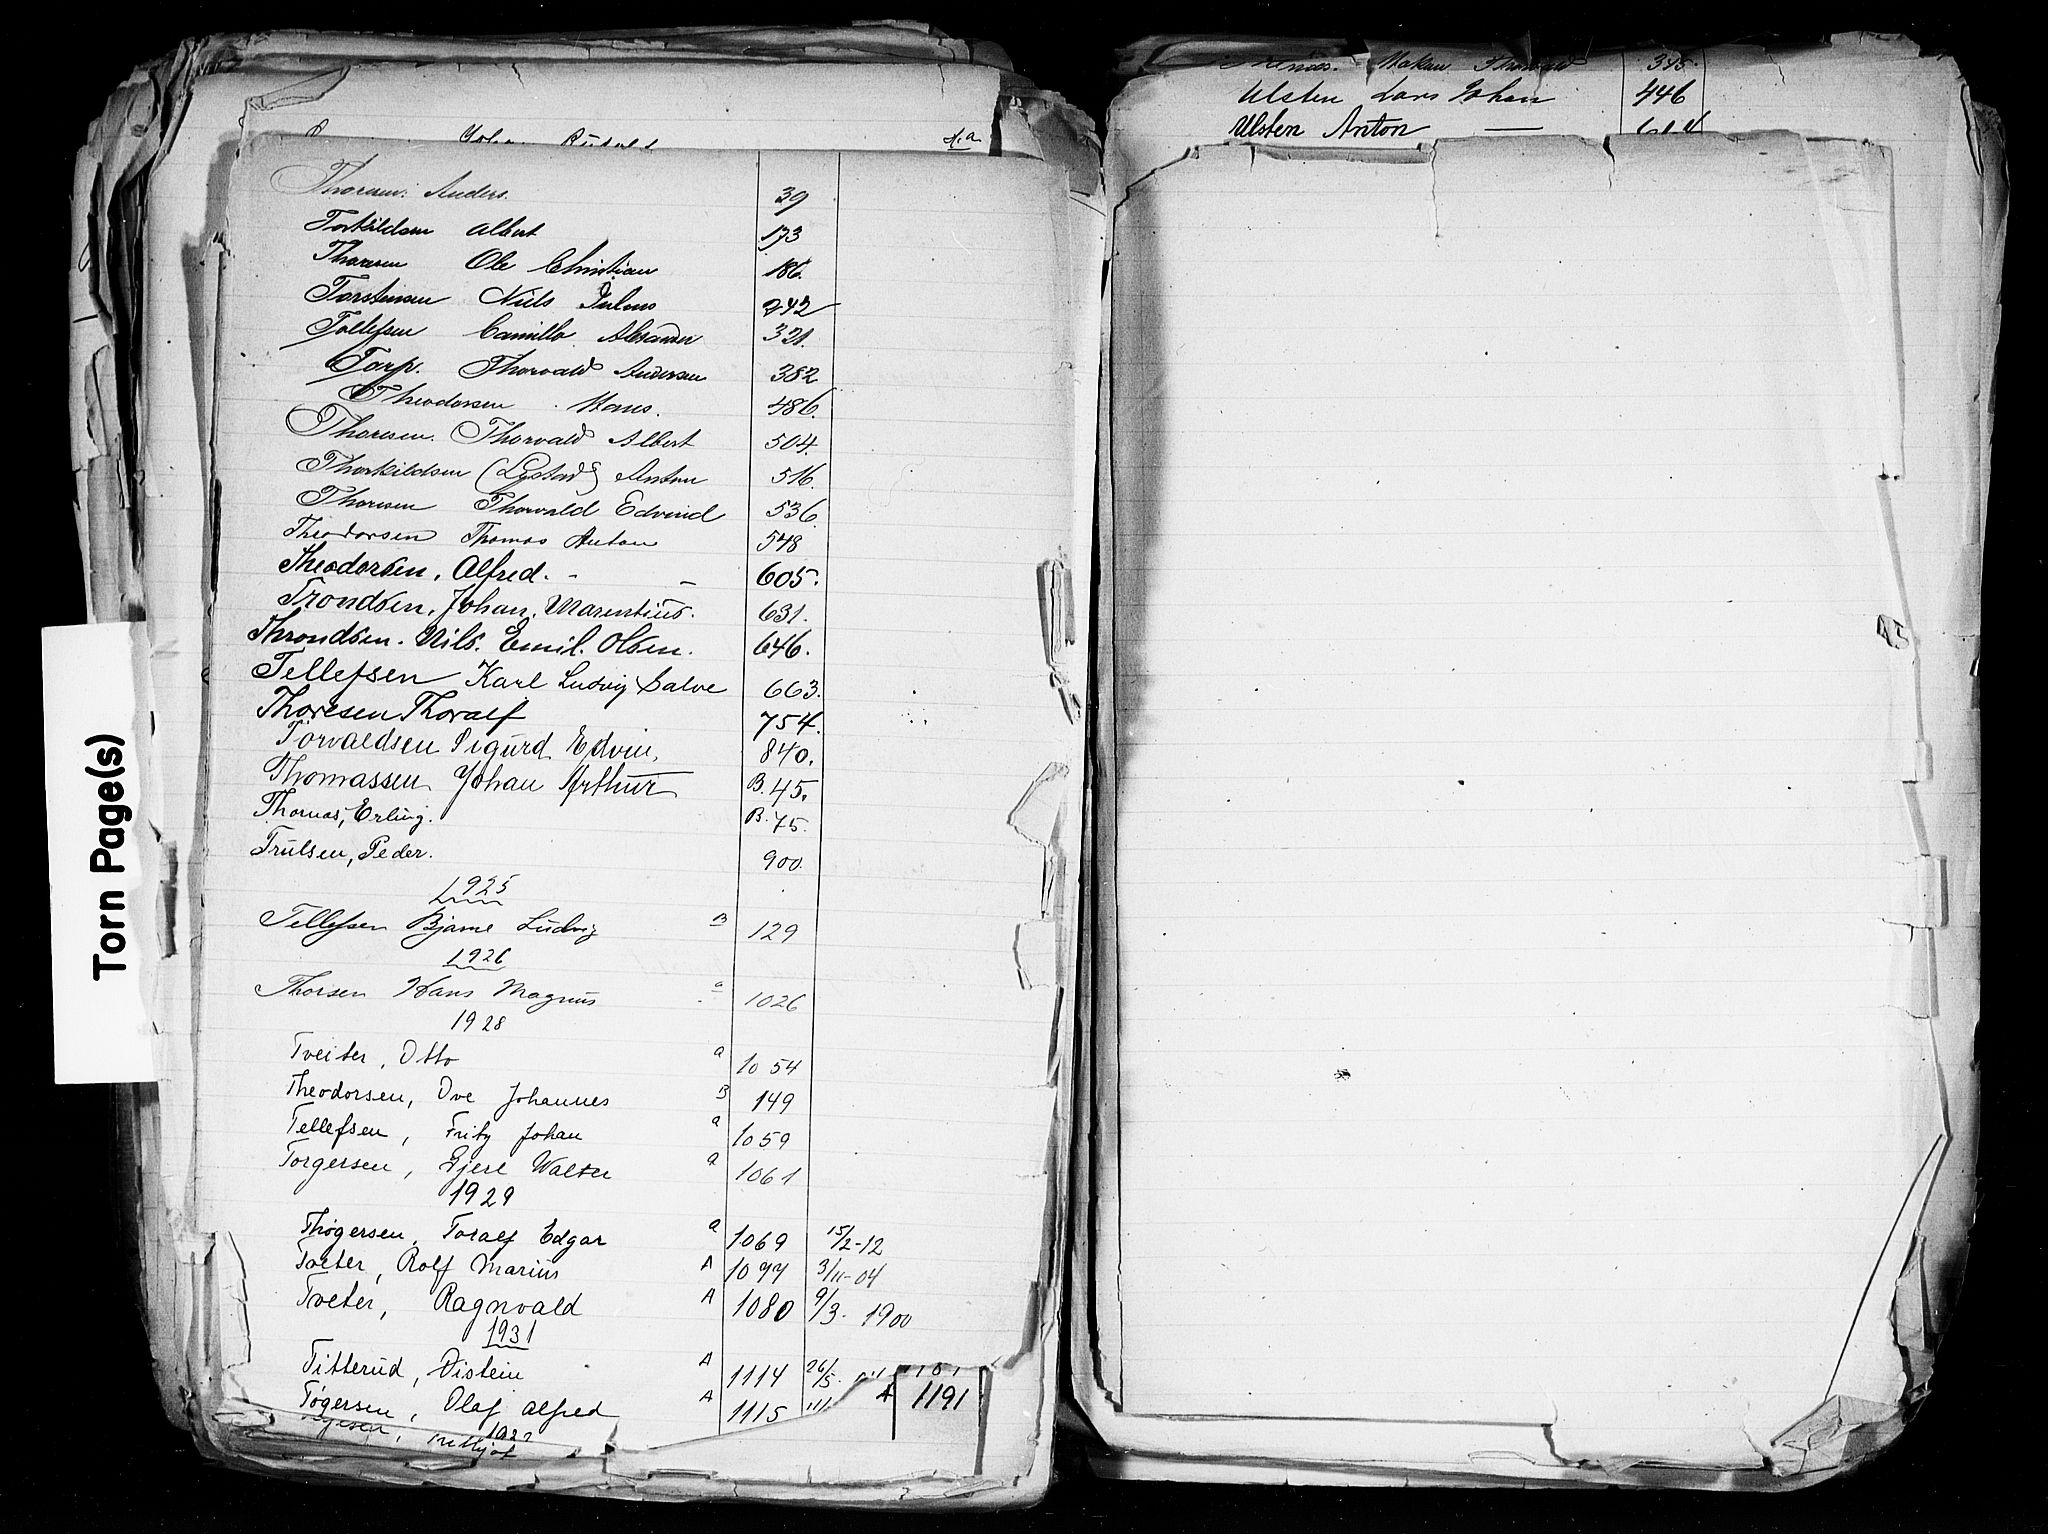 Thoresen. Anders. 39
Torkildsen Albert 173
Thoresen Ole Christian 186.
Torstensen Niels Julius 242
Tollefsen Camillo Alexander 321.
Torp. Thorvald Andersen 382
Theodorsen Hans. 486.
Thoresen. Thorvald Albert 504.
Thorkildsen (Lystad) Anton 516.
Thoresen Thorvald Edvind 536.
Theodorsen Thomas Anton 548
Theodorsen, Alfred. - — 605.
Trondsen, Johan, Marentius. 631.
Throndsen. Nils. Emil. Olsen. 646.
Tellefsen Karl Ludvig Salve 663.
Thoresen Thoralf 754.
Torvaldsen Sigurd Edvin, 840.
Thomassen Johan Arthur B. 45.
Thomas, Erling. B. 75.
Trulsen, Peder. 900.
1925
Tellefsen Bjarne Ludvig B 129
1926
Thorsen Hans Magnus a 1026
1928
Tveiter, Otto a 1054
Theodorsen, Ove Johannes B 149
Tellefsen, Fritz Johan a 1059
Torgersen, Gjert Walter a 1061
1929
Thøgersen, Toralf Edgar a 1069 15/2-12
Tveter, Rolf Marius A 1077 3/11-04
Tveter, Ragnvald A 1080 9/3. 1900
1931
Titterud, Øistein A 1114 26/5.
Tøgersen, Olaf Alfred A 1115
A 1191
Johan Rudolf
Hakon Thorvald 345.
Ulsten Lars Johan 446
Ulsten Anton —
Torn Page(s)